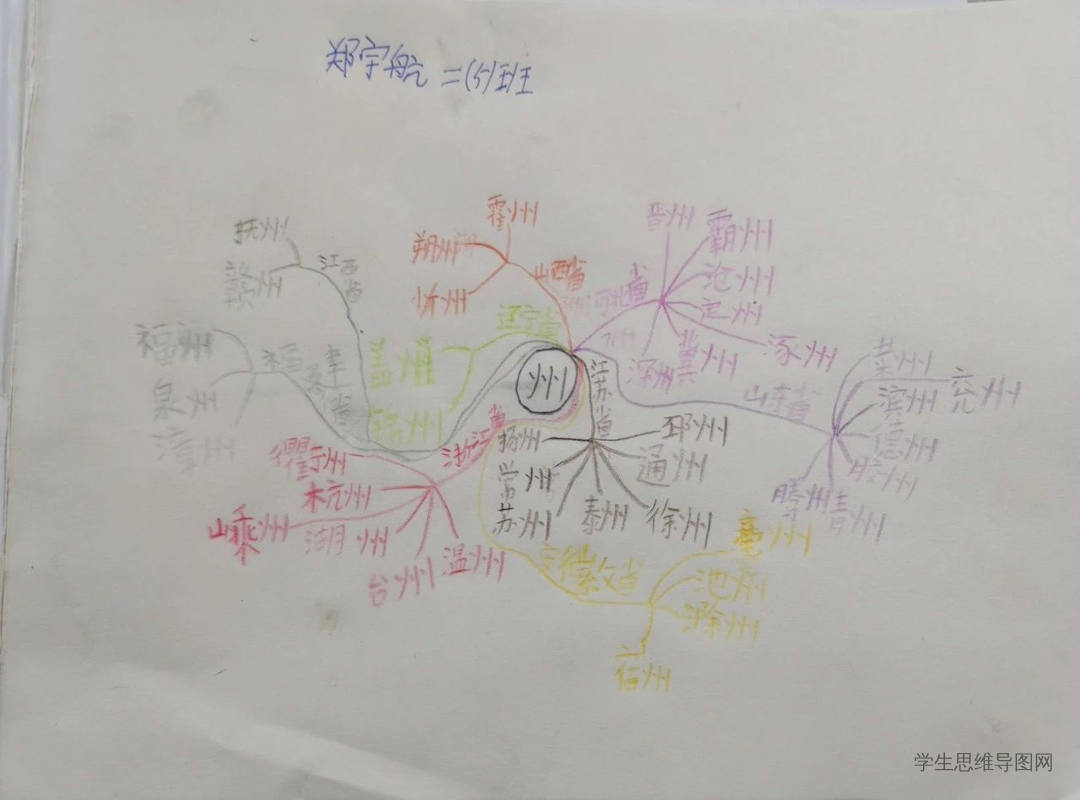 郑宇航 二(1)班
州
江西省
抚州
赣州
福建省
福州
泉州
漳州
山西省
霍州
朔州
忻州
辽宁省
盖州
锦州
河北省
晋州
霸州
沧州
定州
涿州
冀州
深州
山东省
莱州
兖州
滨州
德州
胶州
青州
滕州
江苏省
扬州
常州
苏州
泰州
徐州
通州
邳州
浙江省
衢州
杭州
嵊州
湖州
台州
温州
安徽省
亳州
池州
滁州
宿州
学生思维导图网